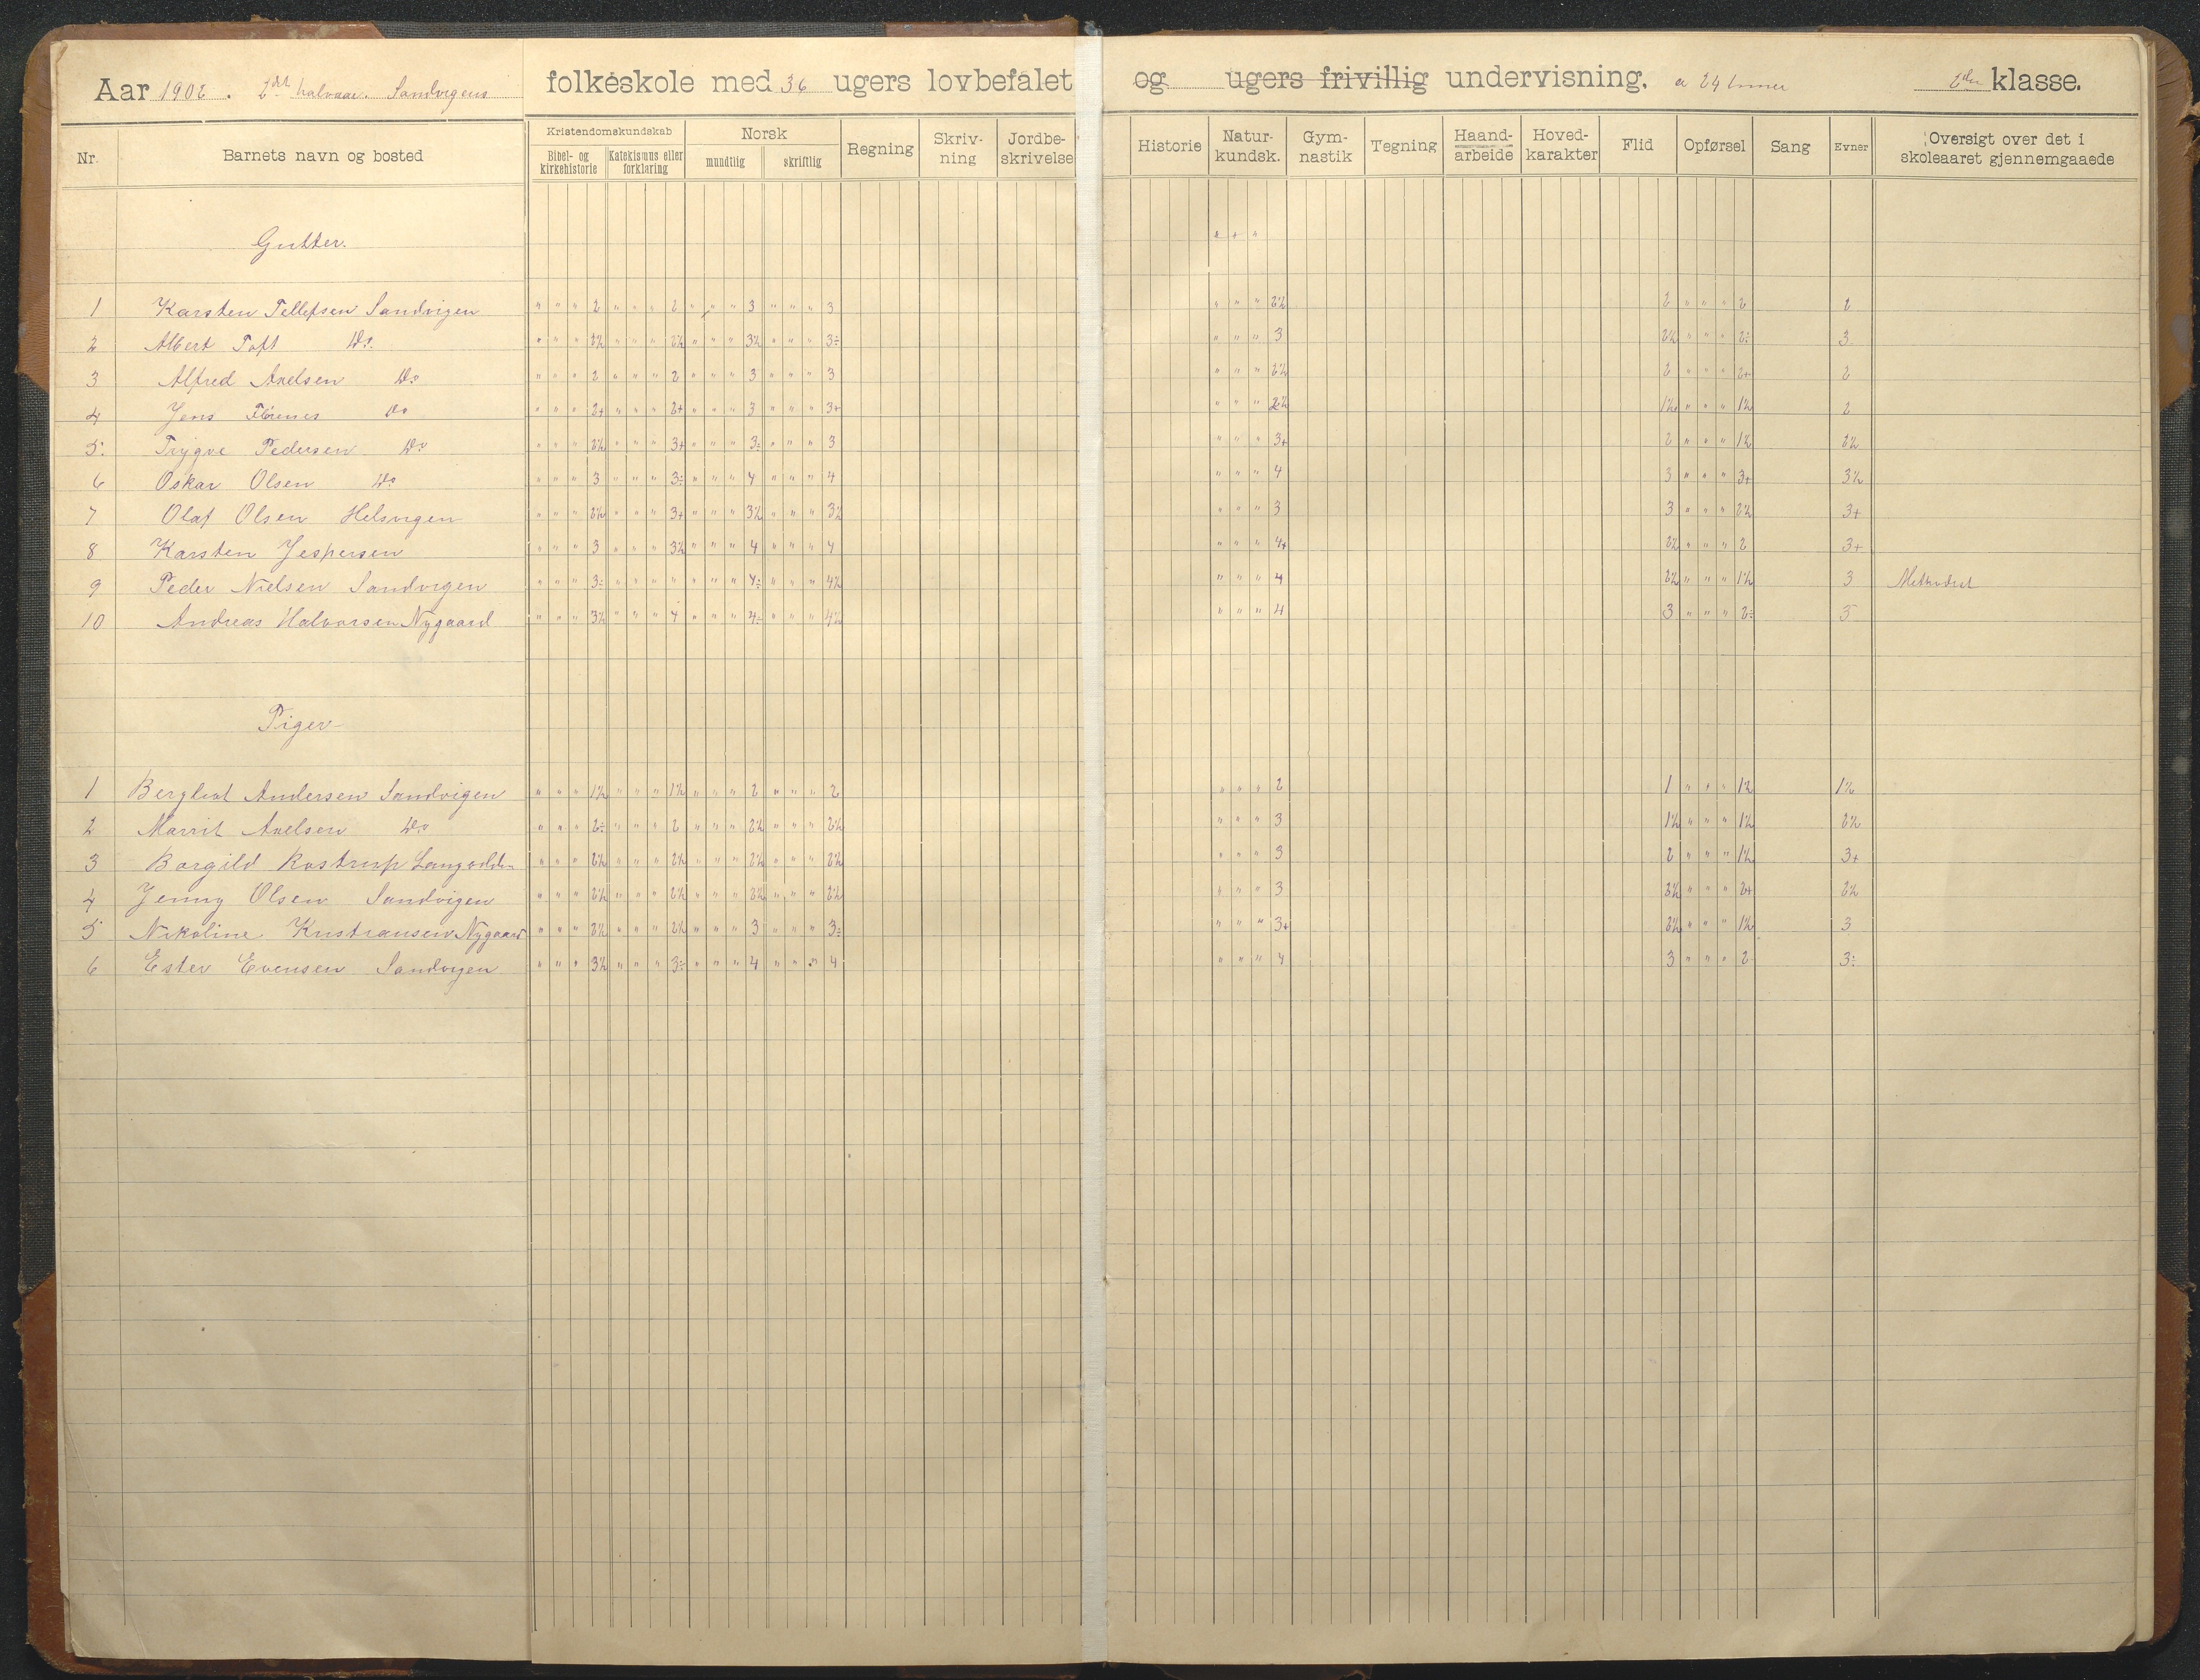 Aar 1902. 2det halvaar. Sandvigens folkeskole med 36 ugers lovbefalet og ugers frivillig undervisning. a 24 timer 2den klasse.
Nr. Barnets navn og bosted Kristendomskundskab Norsk Regning Skriv-ning Jordbe-skrivelse Historie Natur-kundsk. Gym-nastik Tegning Haand-arbeide Hoved-karakter Flid Opførsel Sang Evner Oversigt over det i skoleaaret gjennemgaaede
Bibel- og kirkehistorie Katekismus eller forklaring mundtlig skriftlig
Gutter. " + "
1 Karsten Tellefsen Sandvigen " " " 2 " " " 2 " " " 3 " " " 3 " " " 2½ 2 " " " 2 2
2 Albert Toft Do. " " " 2½ " " " 2½ " " " 3½ " " " 3÷ " " " 3 2½ " " " 2÷ 3
3 Alfred Axelsen Do " " " 2 " " " 2 " " " 3 " " " 3 " " " 2½ 2 " " " 2+ 2
4 Jens Do " " " 2+ " " " 2+ " " " 3 " " " 3+ " " " 2½ 1½ " " " 1½ 2
5. Trygve Pedersen Do " " " 2½ " " " 3+ " " " 3÷ " " " 3 " " " 3+ 2 " " " 1½ 2½
6 Oskar Olsen Do " " " 3 " " " 3÷ " " " 4 " " " 4 " " " 4 3 " " " 3+ 3½
7 Olaf Olsen Helsvigen " " " 2½ " " " 3+ " " " 3½ " " " 3½ " " " 3 3 " " " 2½ 3+
8 Karsten Jespersen " " " 3 " " " 3½ " " " 4 " " " 4 " " " 4+ 2½ " " " 2 3+
9 Peder Nielsen Sandvigen " " " 3÷ " " " " " " " 4÷ " " " 4½ " " " 4 2½ " " " 1½ 3 Methodist
10 Andreas Halvorsen Nygaard " " " 3½ " " " 4 " " " 4÷ " " " 4½ " " " 4 3 " " " 2÷ 5
Piger
1 Bergliot Andersen Sandvigen " " " 1½ " " " 1½ " " " 2 " " " 2 " " " 2 1 " " " 1½ 1½
2 Marrit Axelsen Do " " " 2÷ " " " 2 " " " 2½ " " " 2½ " " " 3 1½ " " " 1½ 2½
3 Borgild Rostrup Langodden " " " 2½ " " " 2½ " " " 2½ " " " 2½ " " " 3 2 " " " 1½ 3+
4 Jenny Olsen Sandvigen " " " 2½ " " " 2½ " " " 2½ " " " 2½ " " " 3 2½ " " " 2+ 2½
5 Nikoline Kristiansen Nygaard " " " 2½ " " " 2½ " " " 3 " " " 3÷ " " " 3+ 2½ " " " 1½ 3
6 Ester Evensen Sandvigen " " " 3½ " " " 3÷ " " " 4 " " " 4 " " " 4 3 " " " 2 3÷